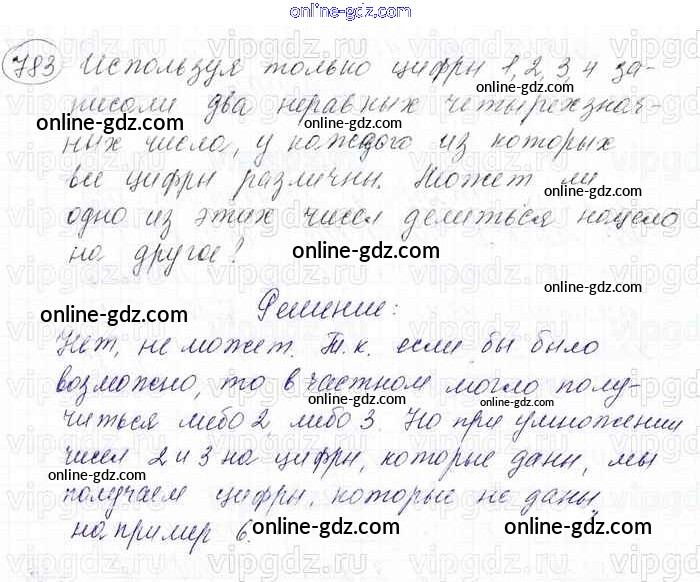 online-gdz.com
783 Используя только цифры 1, 2, 3, 4 за-
писали два неравных четырехзнач-
online-gdz.com
online-gdz.com
ных числа, у каждого из которых
все цифры различны. Может ли
online-gdz.com
одно из этих чисел делиться нацело
на другое?
online-gdz.com
Решение:
online-gdz.com
online-gdz.com
Нет, не может. Т.к. если бы было
возможно, то в частном могло полу-
online-gdz.com
читься либо 2, либо 3. Но при умножении
чисел 2 и 3 на цифры, которые даны, мы
online-gdz.com
получаем цифры, которые не даны,
online-gdz.com
например 6.
online-gdz.com